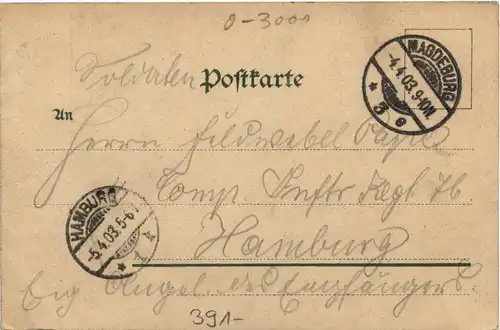 0-3000
Soldaten
Postkarte
MAGDEBURG
-4.4.03. 9-10N.
* 3 e
An
Herrn Feldwebel
Comp. Inftr Regt 76
Hamburg
HAMBURG
-5.4.03. 5-6
*
Eig Angel. des Empfängers.
391-